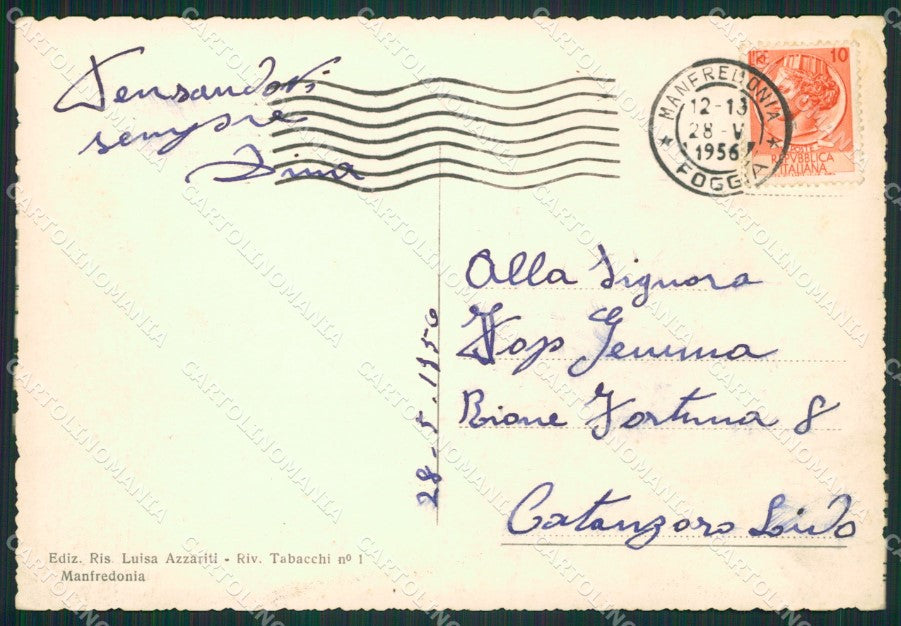 Pensandoti
sempre
Dina
MANFREDONIA
12-13
28-V
1956
FOGGIA
10
POSTE
REPVBBLICA
ITALIANA
Alla Signora
Gemma
Rione Fortuna 8
Catanzaro Lido
28-5-1956
Ediz. Ris. Luisa Azzariti - Riv. Tabacchi nº 1
Manfredonia
CARTOLINOMANIA